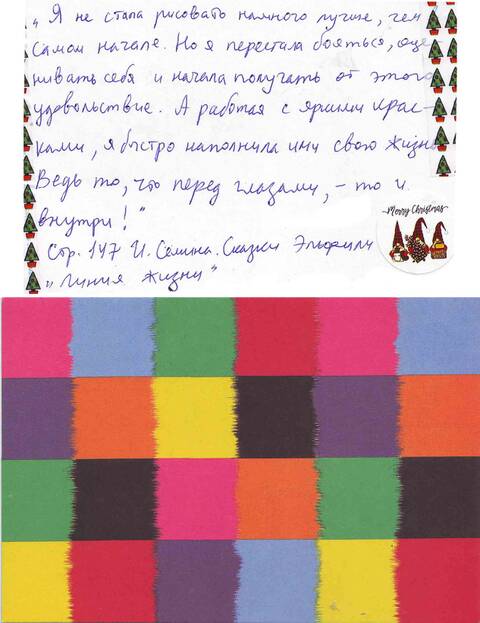 „Я не стала рисовать намного лучше, чем
самом начале. Но я перестала бояться, оце-
нивать себя и начала получать от этого
удовольствие. А работая с яркими крас-
ками, я быстро наполнила ими свою жизнь
Ведь то, что перед глазами, – то и
внутри!"
Merry Christmas
Стр. 147 И. Сёмина. Сказки Эльфики
„Линия жизни"